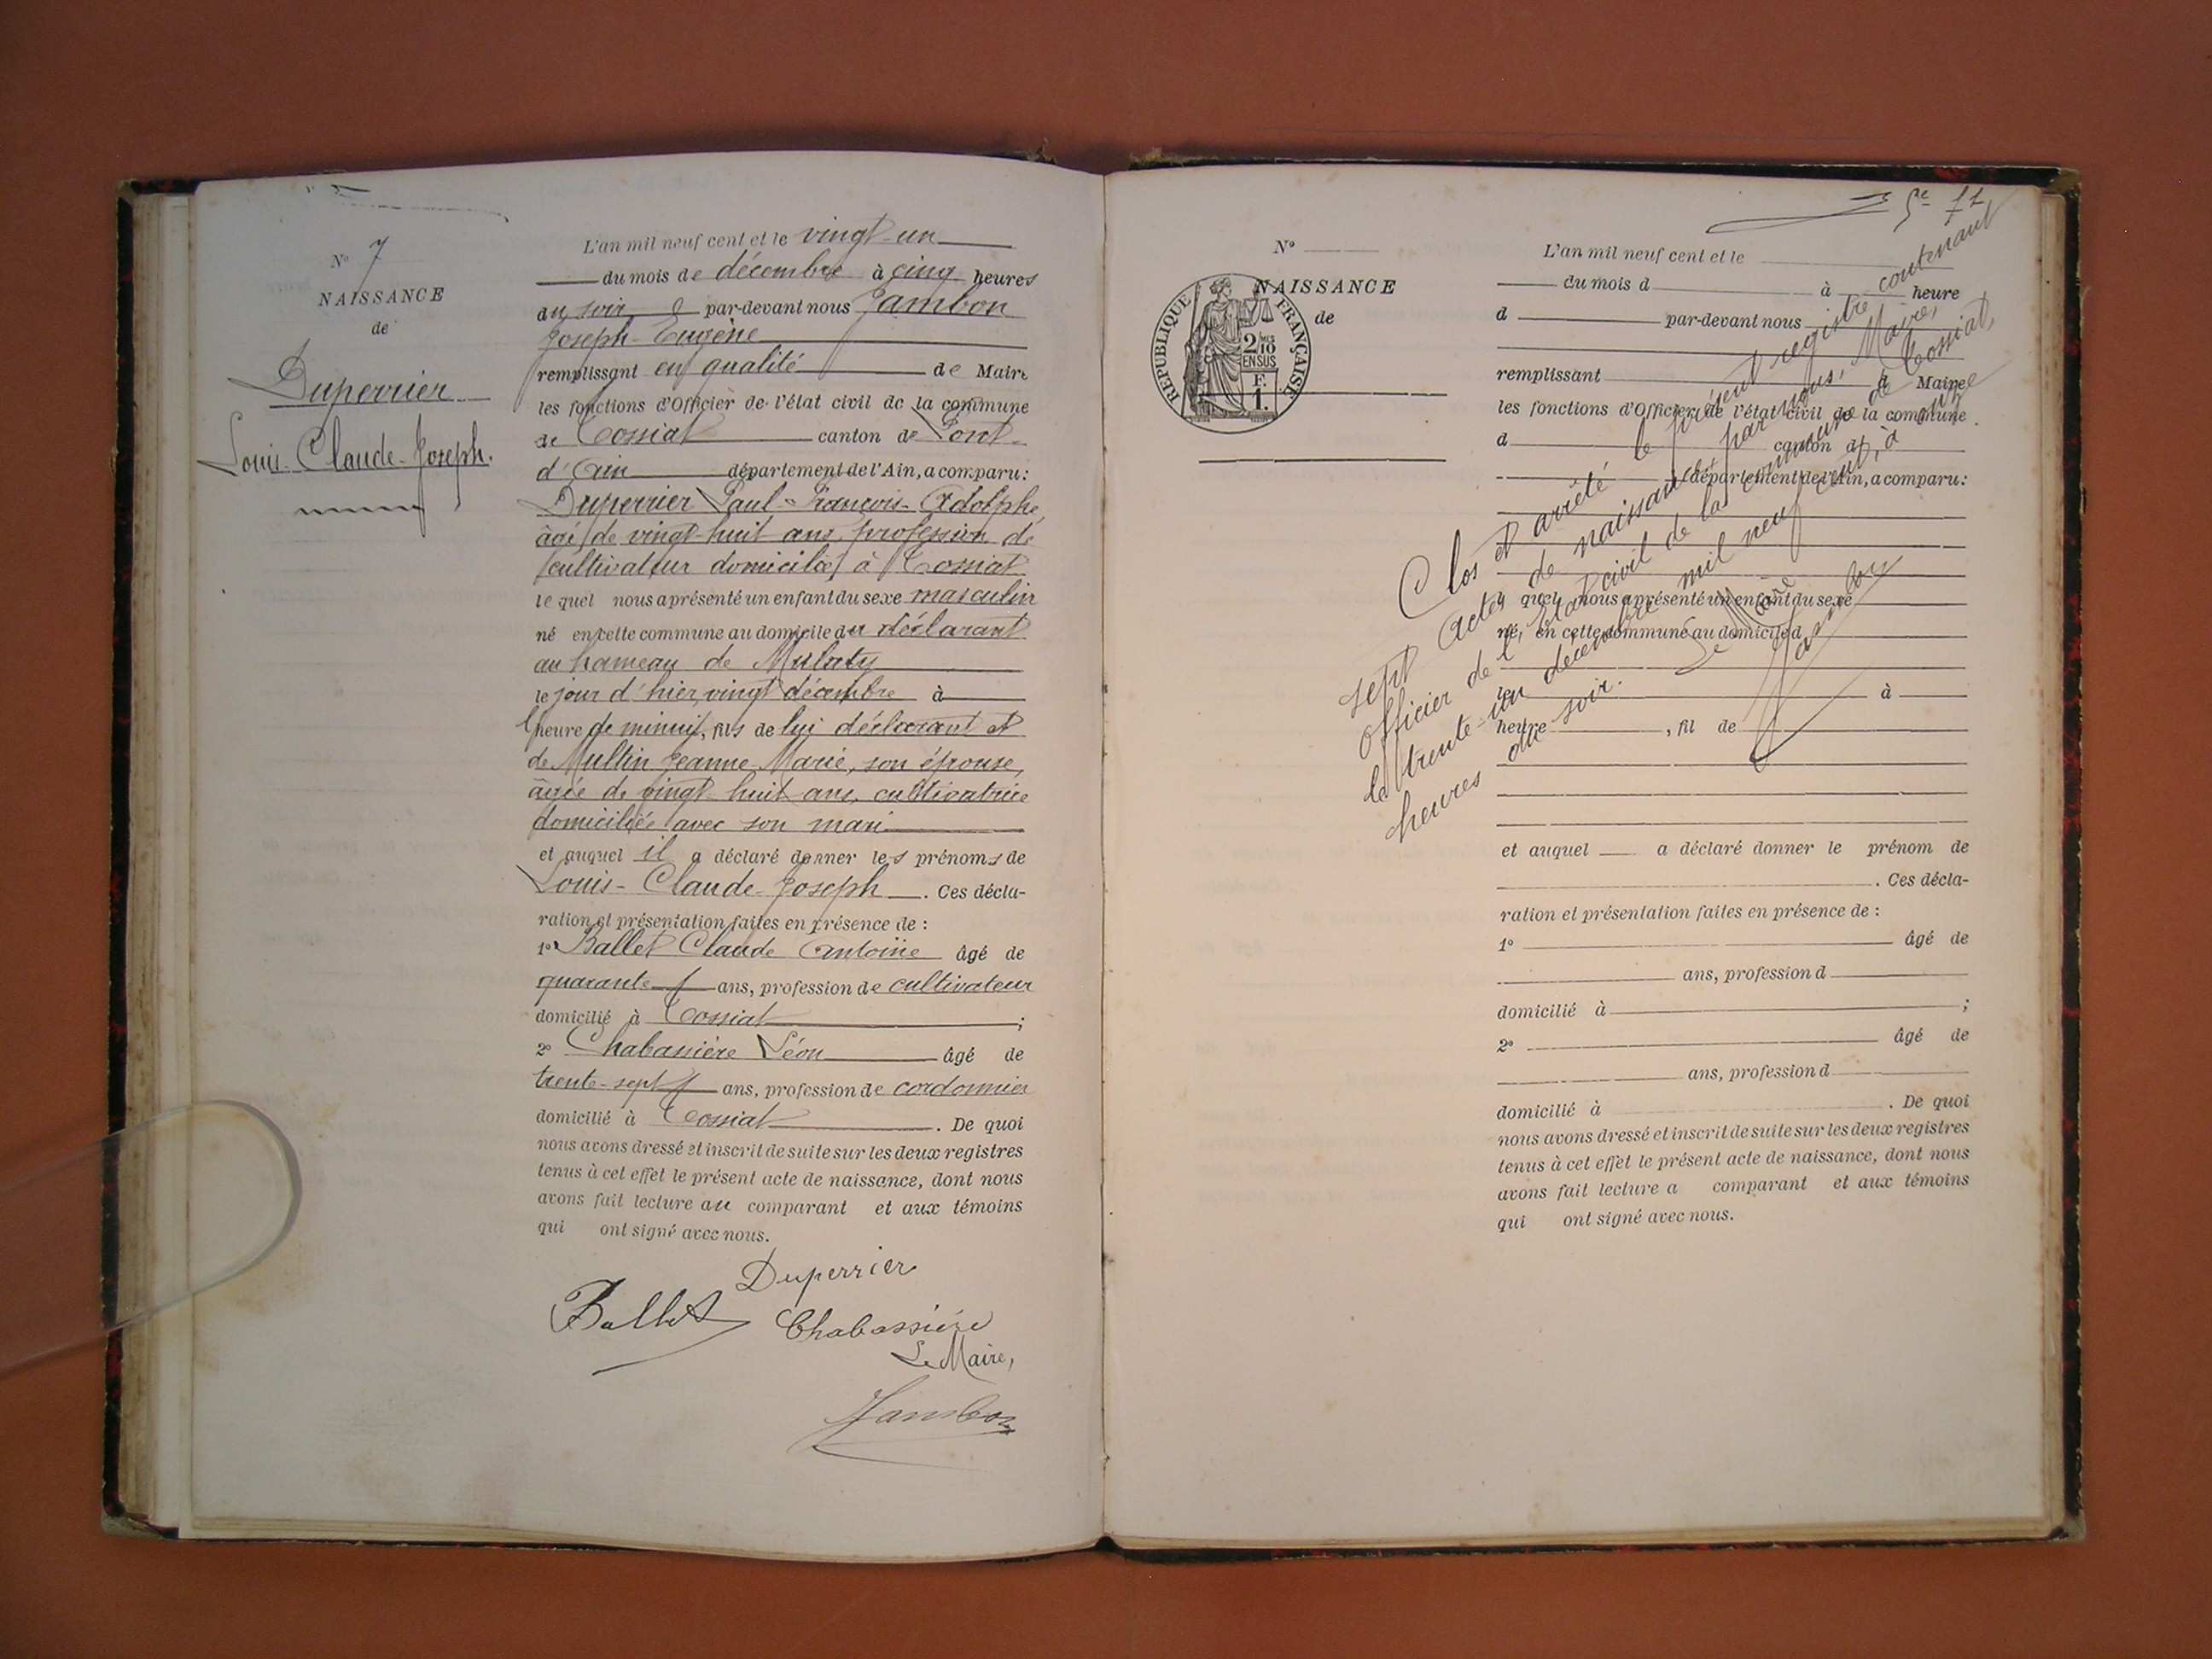 N° 7
NAISSANCE
de
Duperrier
Louis-Claude-Joseph.
L'an mil neuf cent et le vingt-un
du mois de décembre à cinq heures
du soir par-devant nous Jambon
Joseph-Eugène
remplissant en qualité de Maire
les fonctions d'Officier de l'état civil de la commune
de Tossiat canton de Pont-
d'Ain département de l'Ain, a comparu:
Duperrier Paul-François-Adolphe,
âgé de vingt-huit ans, profession de
cultivateur domicilié à Tossiat
lequel nous a présenté un enfant du sexe masculin
né en cette commune au domicile du déclarant
au hameau de Mulaty
le jour d'hier, vingt décembre à
l'heure de minuit, fils de lui déclarant et
de Multin Jeanne-Marie, son épouse,
âgée de vingt-huit ans, cultivatrice
domiciliée avec son mari
et auquel il a déclaré donner les prénoms de
Louis-Claude-Joseph. Ces décla-
ration et présentation faites en présence de :
1° Ballet Claude Antoine âgé de
quarante ans, profession de cultivateur
domicilié à Tossiat ;
2° Chabassière Léon âgé de
trente-sept ans, profession de cordonnier
domicilié à Tossiat. De quoi
nous avons dressé et inscrit de suite sur les deux registres
tenus à cet effet le présent acte de naissance, dont nous
avons fait lecture au comparant et aux témoins
qui ont signé avec nous.
Duperrier
Ballet Chabassière
Le Maire,
Jambon
N°
NAISSANCE
de
RÉPUBLIQUE FRANÇAISE
2/10
EN SUS
F.
1.
L'an mil neuf cent et le
du mois d à heure
d par-devant nous
remplissant d Maire
les fonctions d'Officier de l'état civil de la commune
d canton d
département de l'Ain, a comparu:
quel nous a présenté un enfant du sexe
né en cette commune au domicile d
à
heure , fil de
et auquel a déclaré donner le prénom de
. Ces décla-
ration et présentation faites en présence de :
1° âgé de
ans, profession d
domicilié à ;
2° âgé de
ans, profession d
domicilié à . De quoi
nous avons dressé et inscrit de suite sur les deux registres
tenus à cet effet le présent acte de naissance, dont nous
avons fait lecture a comparant et aux témoins
qui ont signé avec nous.
Clos et arrêté le présent registre contenant
sept actes de naissance par nous, Maire,
officier de l'état civil de la commune de Tossiat,
le trente-un décembre mil neuf cent, à onze
heures du soir.
Le Maire
Jambon